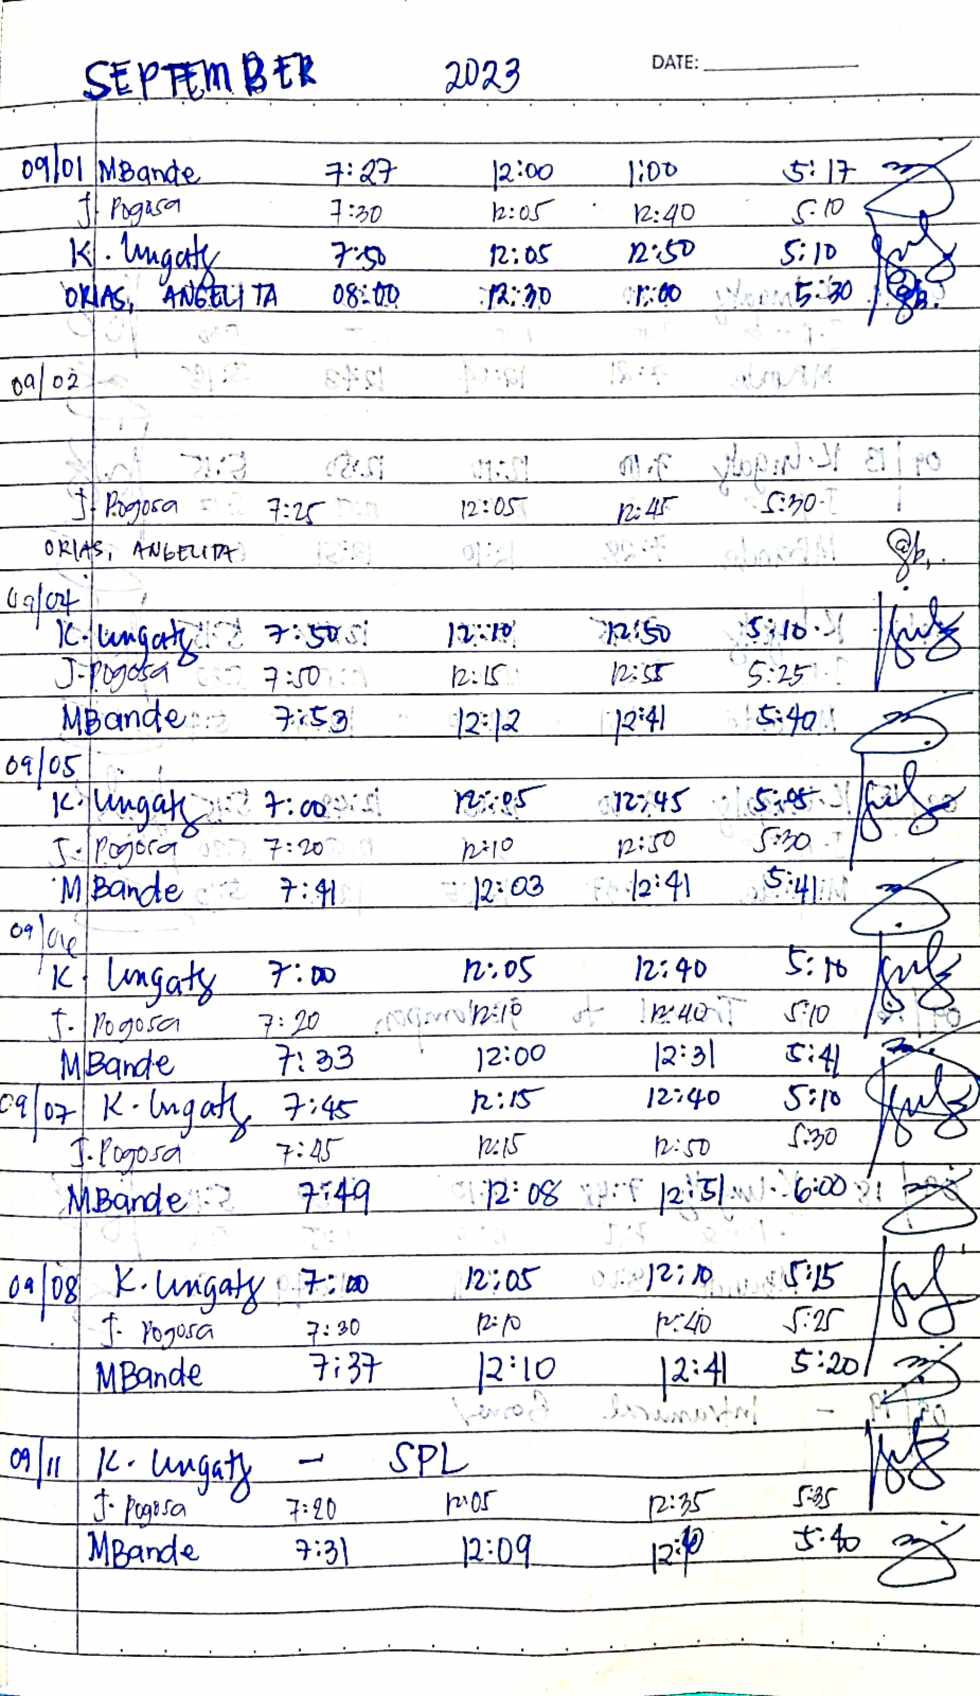 SEPTEMBER 2023 DATE:
09/01 MBande 7:27 12:00 1:00 5:17
J. Pogosa 7:30 12:05 12:40 5:10
K. Ungaty 7:50 12:05 12:50 5:10
ORIAS, ANGELITA 08:00 12:30 1:00 5:30
09/02
J. Pogosa 7:25 12:05 12:45 5:30
ORIAS, ANGELITA
09/04
K. Ungaty 7:50 12:10 12:50 5:10
J. Pogosa 7:50 12:15 12:55 5:25
MBande 7:53 12:12 12:41 5:40
09/05
K. Ungaty 7:00 12:05 12:45 5:05
J. Pogosa 7:20 12:10 12:50 5:30
MBande 7:41 12:03 12:41 5:41
09/06
K. Ungaty 7:00 12:05 12:40 5:10
J. Pogosa 7:20 12:10 12:40 5:10
MBande 7:33 12:00 12:31 5:41
09/07 K. Ungaty 7:45 12:15 12:40 5:10
J. Pogosa 7:45 12:15 12:50 5:30
MBande 7:49 12:08 12:51 6:00
09/08 K. Ungaty 7:00 12:05 12:10 5:15
J. Pogosa 7:30 12:10 12:40 5:25
MBande 7:37 12:10 12:41 5:20
09/11 K. Ungaty - SPL
J. Pogosa 7:20 12:05 12:35 5:35
MBande 7:31 12:09 12:40 5:40